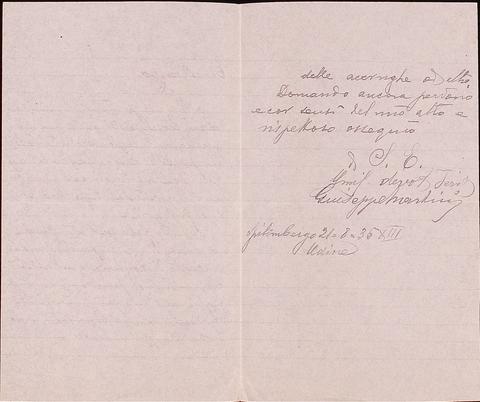 delle acciughe od altro
Domando ancora perdono
e coi sensi del mio alto e
rispettoso ossequio
di S. E.
Umil. devot
Giuseppe Martini
Spilimbergo 21-8-35 XIII
Udine